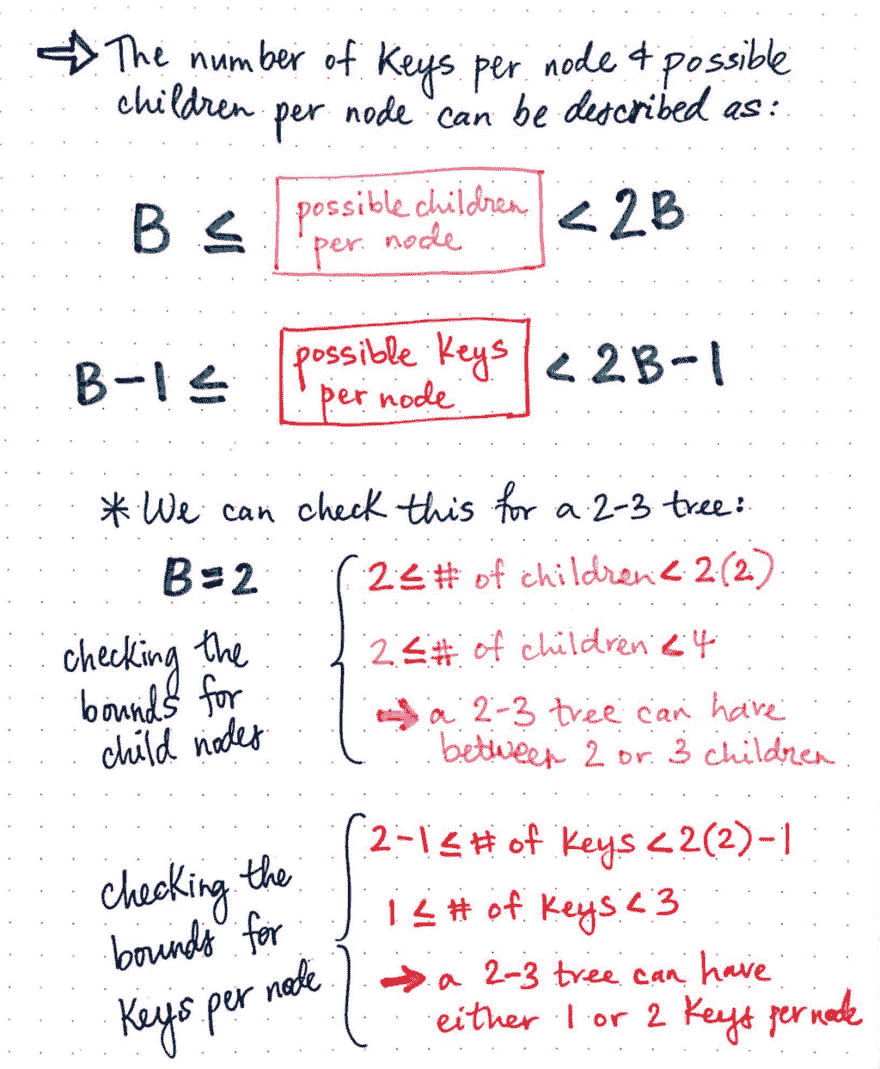 ⇒ The number of Keys per node & possible
children per node can be described as:
B ≤ possible children per node < 2B
B-1 ≤ possible Keys per node < 2B-1
* We can check this for a 2-3 tree:
B=2
checking the
bounds for
child nodes
2 ≤ # of children < 2(2)
2 ≤ # of children < 4
→ a 2-3 tree can have
between 2 or 3 children
checking the
bounds for
Keys per node
2-1 ≤ # of Keys < 2(2)-1
1 ≤ # of Keys < 3
→ a 2-3 tree can have
either 1 or 2 Keys per node